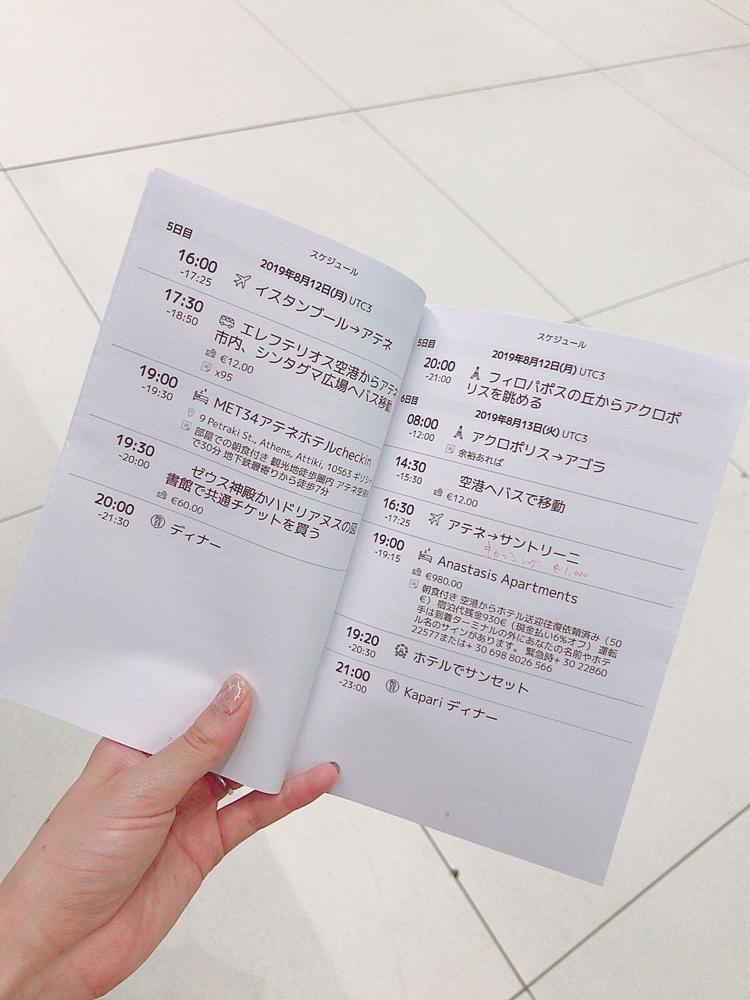 スケジュール
5日目
2019年8月12日(月) UTC3
16:00
-17:25
イスタンブール→アテネ
17:30
-18:50
エレフテリオス空港からアテネ
市内、シンタグマ広場へバス移動
€12.00
x95
19:00
-19:30
MET34アテネホテルcheckin
9 Petraki St., Athens, Attiki, 10563 ギリシャ
部屋での朝食付き 観光地徒歩圏内 アテネ空港
で30分 地下鉄最寄りから徒歩7分
19:30
-20:00
ゼウス神殿かハドリアヌスの図
書館で共通チケットを買う
€60.00
20:00
-21:30
ディナー
7
スケジュール
5日目
2019年8月12日(月) UTC3
20:00
-21:00
フィロパポスの丘からアクロポ
リスを眺める
6日目
2019年8月13日(火) UTC3
08:00
-12:00
アクロポリス→アゴラ
余裕あれば
14:30
-15:30
空港へバスで移動
€12.00
16:30
-17:25
アテネ→サントリーニ
キャッシング €1,000
19:00
-19:15
Anastasis Apartments
€980.00
朝食付き 空港からホテル送迎往復依頼済み（50
€） 宿泊代残金930€（現金払い6%オフ） 運転
手は到着ターミナルの外にあなたの名前やホテ
ル名のサインがあります。 緊急時+ 30 22860
22577または+ 30 698 8026 566
19:20
-20:30
ホテルでサンセット
21:00
-23:00
Kapari ディナー
8